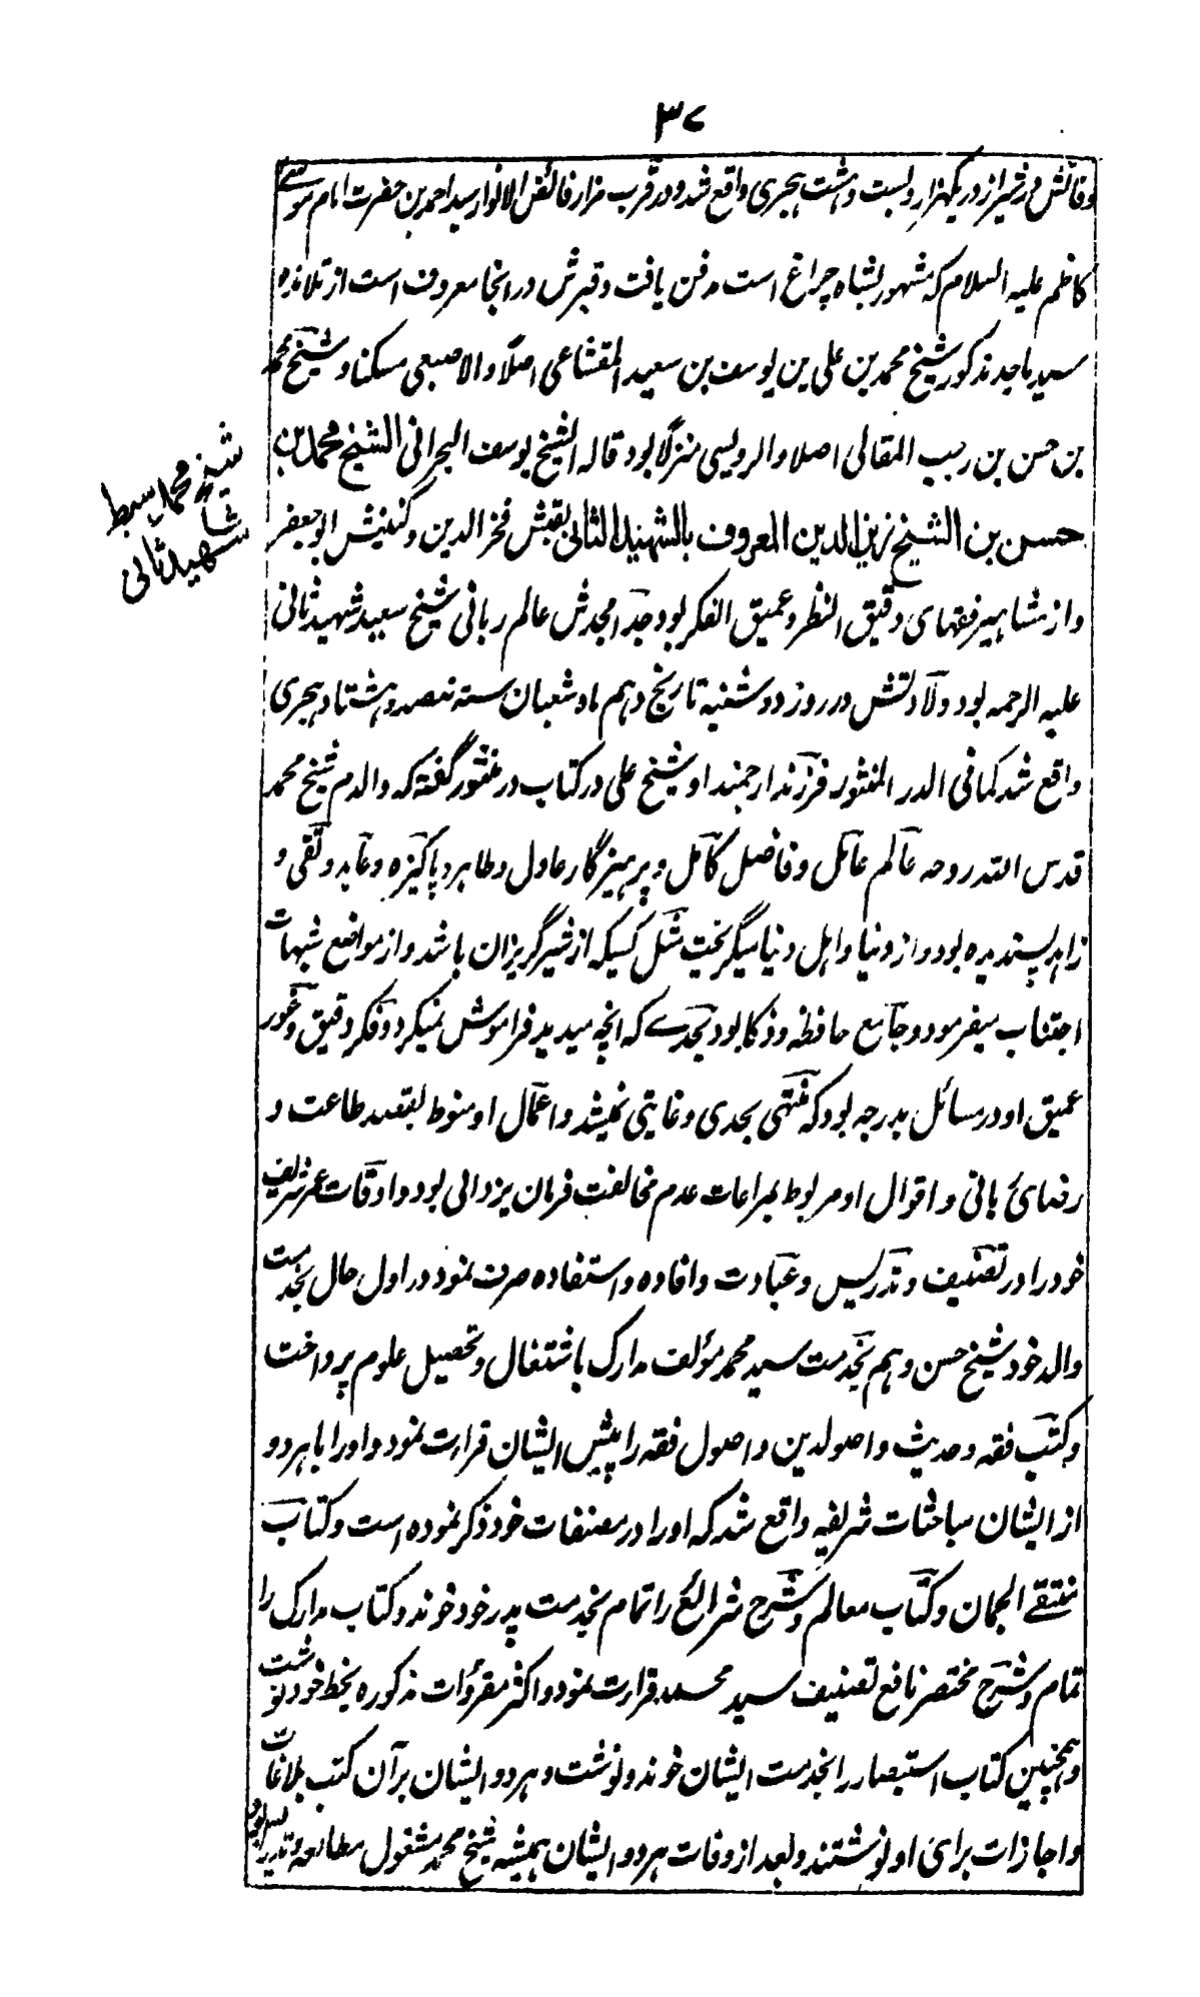 ۳۷
وفاتش در شیراز در یکهزار و بست و هشت هجری واقع شد و در قرب مزار فائض الانوار سید احمد بن حضرت امام موسے
کاظم علیه السلام که مشهور بشاه چراغ است مدفن یافت و قبرش در انجا معروف است از تلامذه
سید ماجد مذکور شیخ محمد بن علی بن یوسف بن سعید المقشاعی اصلا والاصبعی مسکنا و شیخ محمد
بن حسن بن رجب المقالی اصلا والرویسی منزلا بود قاله الشیخ یوسف البحرانی الشیخ محمد بن
حسن بن الشیخ زین الدین المعروف بالشهید الثانی لقبش فخر الدین و کنیتش ابو جعفر
شیخ محمد سبط
شهید ثانی
و از مشاهیر فقهای دقیق النظر و عمیق الفکر بود جد امجدش عالم ربانی شیخ سعید شهید ثانی
علیه الرحمه بود ولادتش در روز دوشنبه تاریخ دهم ماه شعبان سنه نهصد و هشتاد هجری
واقع شد کما فی الدر المنثور فرزند ارجمند او شیخ علی در کتاب در منثور گفته که والدم شیخ محمد
قدس الله روحه عالم عامل و فاضل کامل و پرهیزگار عادل و طاهر و پاکیزه و عابد و تقی و
زاهد پسندیده بود و از دنیا و اهل دنیا میگریخت مثل کسیکه از شیر گریزان باشد و از مواضع شبهات
اجتناب میفرمود و جامع حافظه و ذکا بود بحدے که انچه میدید فراموش نمیکرد و فکر دقیق و غور
عمیق او در مسائل بدرجه بود که منتهی بحدی و غایتی نمیشد و اعمال او منوط بقصد طاعت و
رضائ بانی و اقوال او مربوط بمراعات عدم مخالفت فرمان یزدانی بود و اوقات عمر شریف
خود را در تصنیف و تدریس و عبادت و افاده و استفاده صرف نمود در اول حال بخدمت
والد خود شیخ حسن و هم بخدمت سید محمد مؤلف مدارک باشتغال و تحصیل علوم پرداخت
و کتب فقه و حدیث و اصولدین و اصول فقه را پیش ایشان قرارت نمود و او را با هر دو
از ایشان مباحثات شریفه واقع شد که او را در مصنفات خود ذکر نموده است و کتاب
منتقے الجمان و کتاب معالم و شرح شرائع را تمام بخدمت پدر خود خوند و کتاب مدارک را
تمام و شرح مختصر نافع تصنیف سید محمد قرارت نمود و اکثر مقروات مذکوره بخط خود نوشت
و همچنین کتاب استبصار را بخدمت ایشان خوند و نوشت و هر دو ایشان بر آن کتب بلاغات
و اجازات برای او نوشتند و بعد از وفات هر دو ایشان همیشه شیخ محمد مشغول مطالعه و تدریس بود